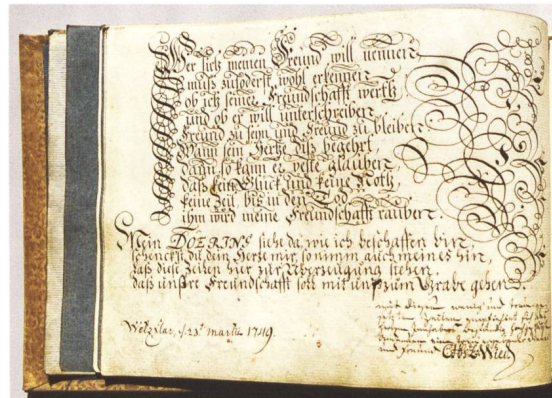 Wer sich meinen Freund will nennen
muß zuförderst wohl erkennen
ob ich seiner Freundschafft werth
und ob er will unterschreiben
Freund zu seyn und Freund zu bleiben
Wann sein Hertze diß begehrt
dann so kann er veste glauben
daß kein Glück und keine Noth,
keine Zeit, bis in den Tod
ihm wird meine Freundschafft rauben.
Mein DOERING siehe da, wie ich beschaffen bin,
schenckst du dein Herze mir, so nimm auch meines hin,
daß diese Zeilen hier zur Überzeugung stehen,
daß unsre Freundschafft soll mit uns zum Grabe gehen.
Wetzlar, d. 21t Martii 1749.
mit diesen wenig und
Zeilen
und Freund